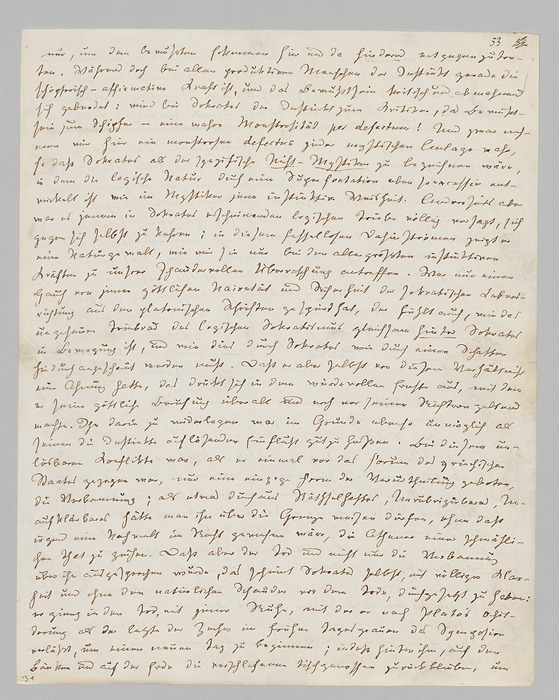 53
nur, um dem bewußten Erkennen hier und da hindernd entgegenzutre-
ten. Während doch bei allen produktiven Menschen der Instinkt gerade die
schöpferisch-affirmative Kraft ist, und das Bewußtsein kritisch und abmahnend
sich gebärdet: wird bei Sokrates der Instinkt zum Kritiker, das Bewußt-
sein zum Schöpfer – eine wahre Monstrosität per defectum! Und zwar neh-
men wir hier ein monstrosen defectus jeder mystischen Anlage wahr,
so daß Sokrates als der spezifische Nicht-Mystiker zu bezeichnen wäre,
in dem die logische Natur durch eine Superfoetation eben so excessiv ent-
wickelt ist wie im Mystiker jene instinktive Weisheit. Andererseits aber
war es jenem in Sokrates erscheinenden logischen Triebe völlig versagt, sich
gegen sich selbst zu kehren; in diesem fessellosen Dahinströmen zeigt er
eine Naturgewalt, wie wir sie nur bei den allergrößten instinktiven
Kräften zu unsrer schaudervollen Überraschung antreffen. Wer nur einen
Hauch von jener göttlichen Naivetät und Sicherheit der sokratischen Lebens-
richtung aus den platonischen Schriften gespürt hat, der fühlt auch, wie das
ungeheure Triebrad des logischen Sokratismus gleichsam hinter Sokrates
in Bewegung ist, und wie dies durch Sokrates wie durch einen Schatten
hindurch angeschaut werden muß. Daß er aber selbst von diesem Verhältniß
eine Ahnung hatte, das drückt sich in dem würdevollen Ernste aus, mit dem
er seine göttliche Berufung überall und noch vor seinen Richtern geltend
machte. Ihn darin zu widerlegen war im Grunde ebenso unmöglich als
seinen die Instinkte auflösenden Einfluß gutzuheißen. Bei diesem un-
lösbaren Conflikte war, als er einmal vor das Forum des griechischen
Staates gezogen war, nur eine einzige Form der Verurtheilung geboten,
die Verbannung; als etwas durchaus Räthselhaftes, Unrubrizirbares, Un-
aufklärbares hätte man ihn über die Grenze weisen dürfen, ohne daß
irgend eine Nachwelt im Recht gewesen wäre, die Athener einer schmähli-
chen That zu zeihen. Daß aber der Tod und nicht nur die Verbannung
über ihn ausgesprochen wurde, das scheint Sokrates selbst, mit völliger Klar-
heit und ohne den natürlichen Schauder vor dem Tode, durchgesetzt zu haben:
er ging in den Tod, mit jener Ruhe, mit der er nach Platos Schil-
derung als der letzte der Zecher im frühen Tagesgrauen das Symposion
verläßt, um einen neuen Tag zu beginnen; indeß hinter ihm, auf den
Bänken und auf der Erde die verschlafenen Tischgenossen zurückbleiben, um
31